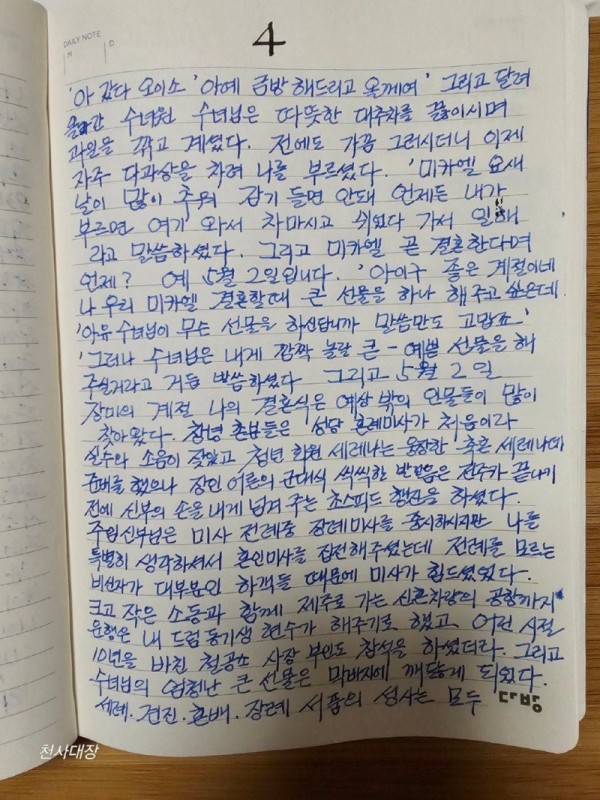 DAILY NOTE
M D
4
'아 갔다 오이소' 아예 금방 해드리고 올께예' 그리고 달려
올라간 수녀원 수녀님은 따뜻한 대추차를 끓이시며
과일을 깎고 계셨다. 전에도 가끔 그러시더니 이제
자주 다과상을 차려 나를 부르셨다. '미카엘 요새
날이 많이 추워 감기 들면 안돼 언제든 내가
부르면 여기 와서 차마시고 쉬었다 가서 일해
라고 말씀하셨다. 그리고 미카엘 곧 결혼한다며
언제? 예 5월 2일입니다. '아이구 좋은 계절이네
나 우리 미카엘 결혼할때 큰 선물을 하나 해주고 싶은데.
'아유 수녀님이 무슨 선물을 하신답니까 말씀만도 고맙죠'
'그러나 수녀님은 내게 깜짝 놀랄 큰 - 예쁜 선물을 해
주실거라고 거듭 말씀하셨다 그리고 5월 2일
장미의 계절 나의 결혼식은 예상 밖의 인물들이 많이
찾아왔다. 청년 들은 성당 혼례미사가 처음이라
실수와 소음이 잦았고 청년 회원 세레나는 웅장한 축혼 세레나데
를 했으나 장인 어른의 군대식 씩씩한 발걸음은 전주가 끝나기
전에 신부의 손을 내게 넘겨 주는 초스피드 행진을 하셨다.
주임신부님은 미사 전례중 장례미사를 중시하시지만 나를
특별히 생각하셔서 혼인미사를 집전해주셨는데 전례를 모르는
비신자가 대부분인 하객들 때문에 미사가 힘드셨었다.
크고 작은 소동과 함께 제주로 가는 신혼차량의 공항까지
운행은 내 드럼 동기생 현수가 해주기로 했고 어린 시절
10년을 바친 철공소 사장 부인도 참석을 하셨더라. 그리고
수녀님의 엄청난 큰 선물은 막바지에 깨닫게 되었다.
세례. 견진. 혼배. 장례 서품의 성사는 모두 다방
천사대장